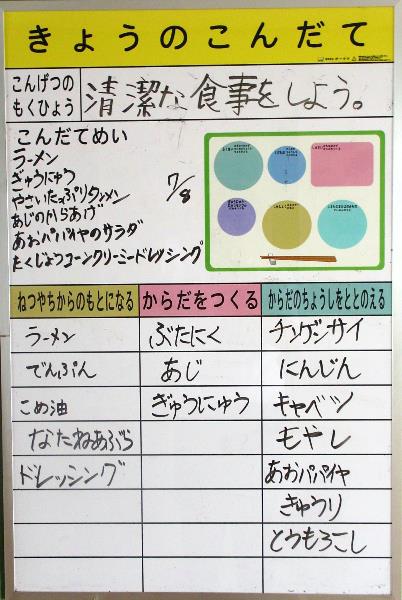 きょうのこんだて
こんげつの
もくひょう
清潔な食事をしよう。
こんだてめい
ラーメン
ぎゅうにゅう
やさいたっぷりタンメン
あじのからあげ
あおパパイヤのサラダ
たくじょうコーンクリーミードレッシング
7/8
ねつやちからのもとになる
からだをつくる
からだのちょうしをととのえる
ラーメン
ぶたにく
チンゲンサイ
でんぷん
あじ
にんじん
こめ油
ぎゅうにゅう
キャベツ
なたねあぶら
もやし
ドレッシング
あおパパイヤ
きゅうり
とうもろこし